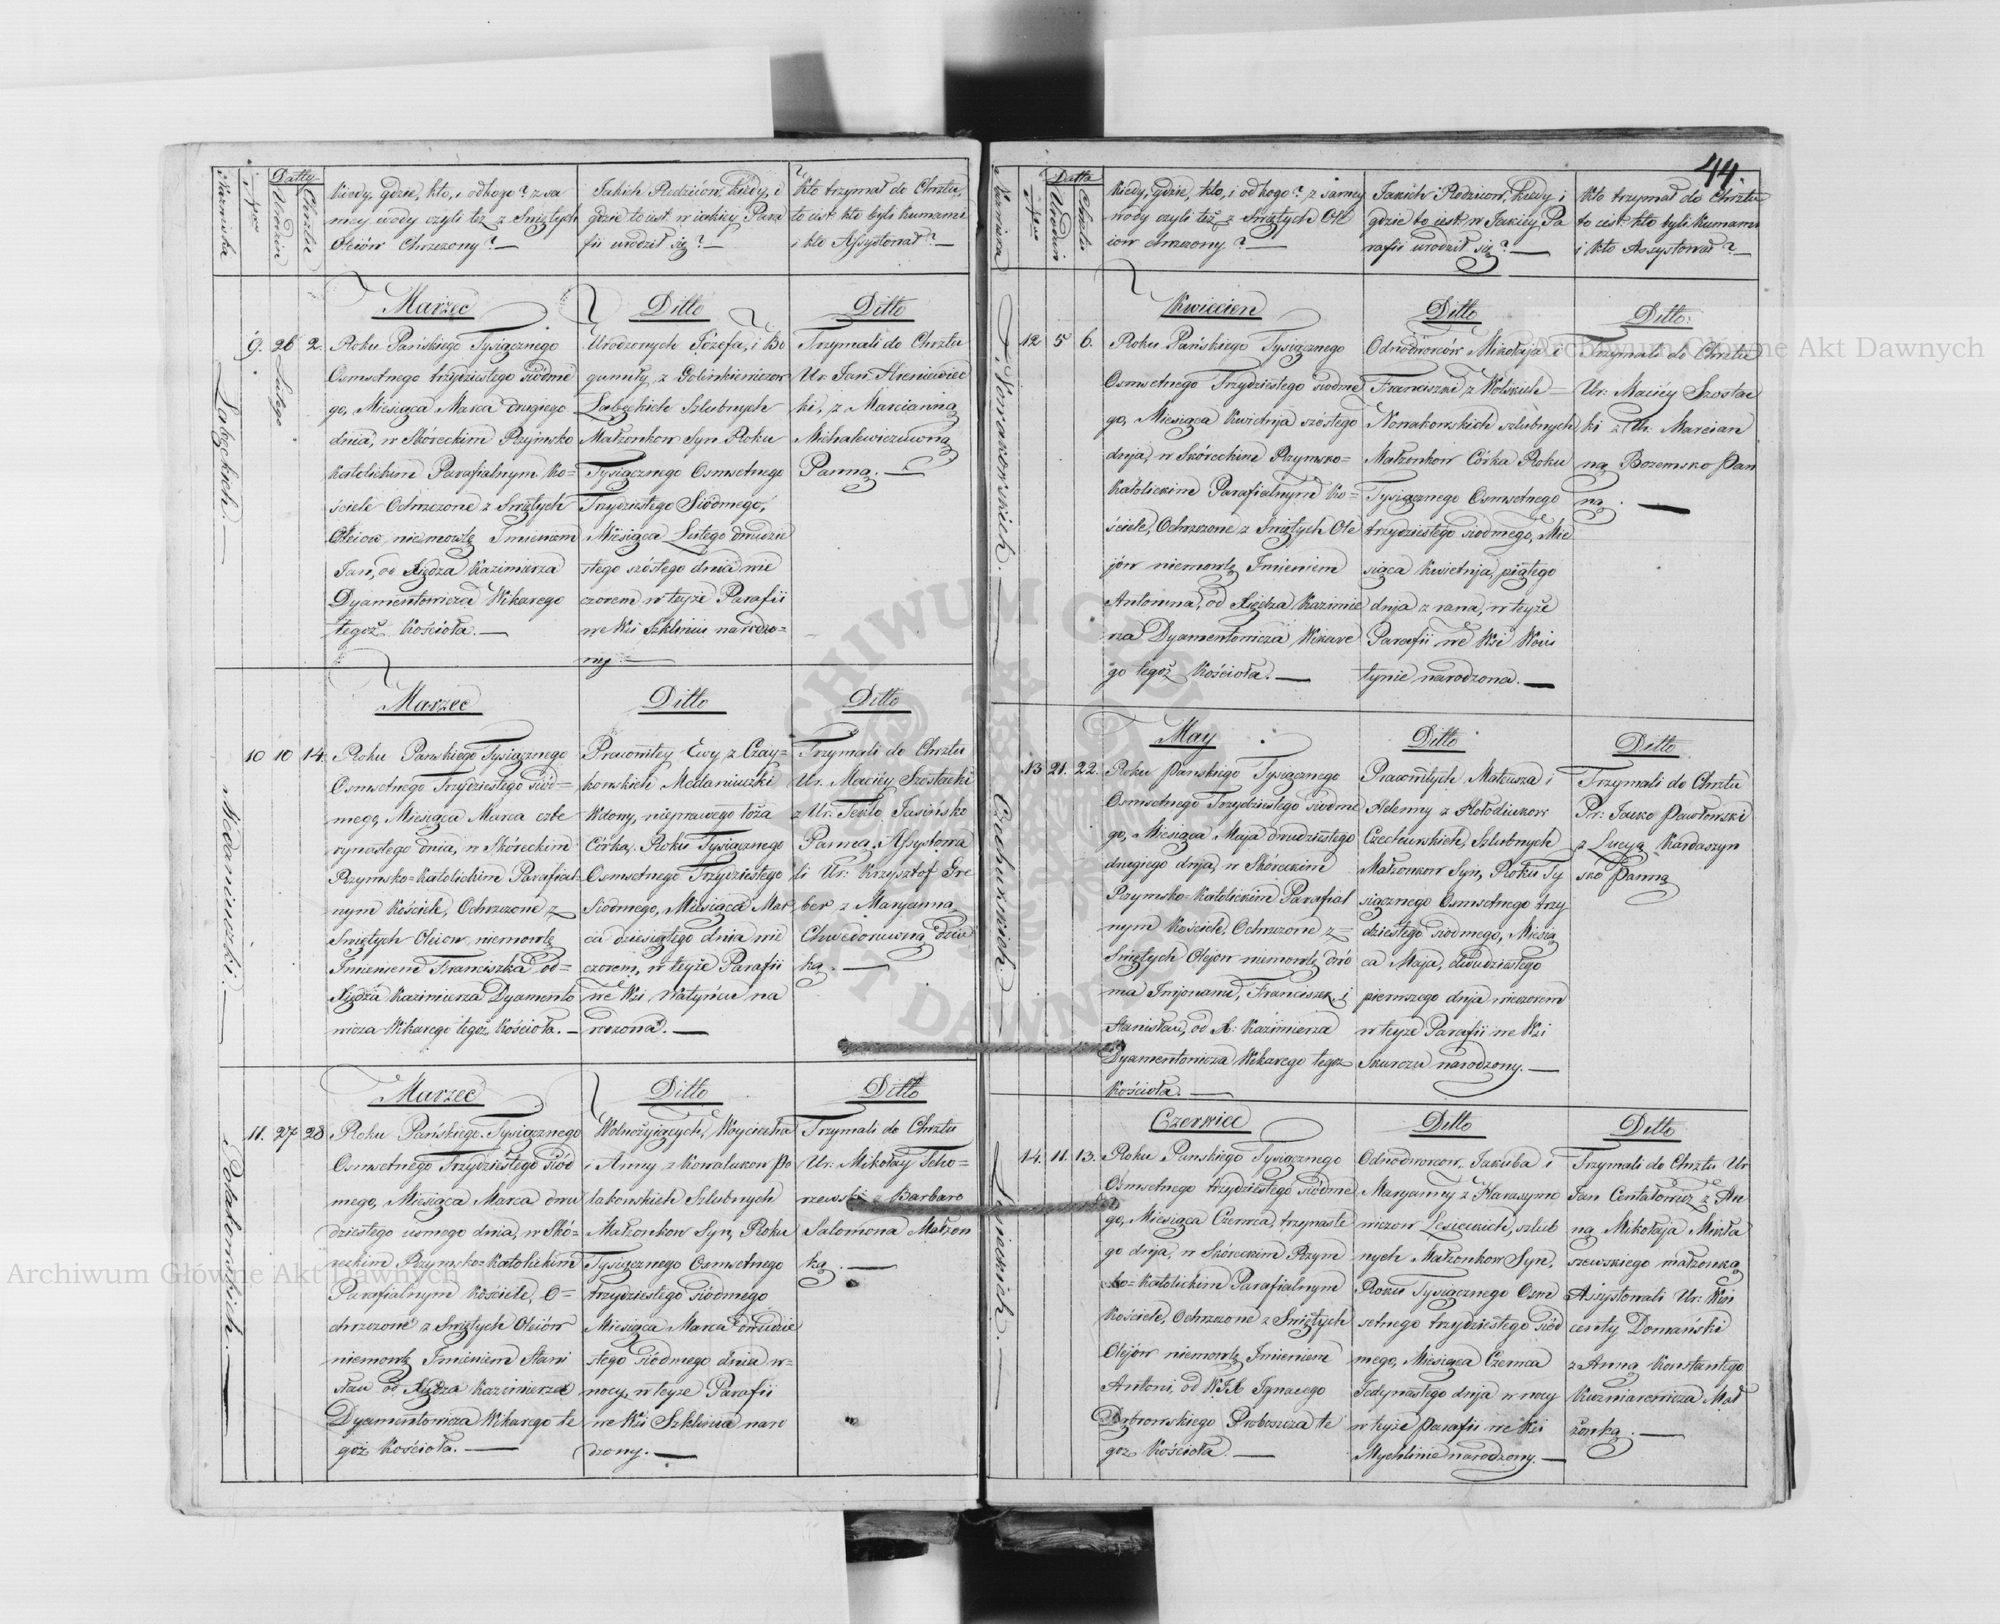 44.
Nazwiska
Nro
Datty
Urodzin
Chrztu
Kiedy, gdzie, kto, i od kogo? z sa
mey wody czyli też z Swiętych
Oleiów Chrzczony? —
Jakich Rodziców, kiedy, i
gdzie to iest w iakiey Para
fii urodził się? —
Kto trzymał do Chrztu,
to iest kto byli Kumami
i kto Assystował? —
Łabęckich. —
9. 26 Lutego 2.
Marzec
Roku Pańskiego Tysiącznego
Osmsetnego trzydziestego siódme
go, Miesiąca Marca drugiego
dnia, w Skóreckim Rzymsko
Katolickim Parafialnym Ko=
ściele Ochrzczone z Swiętych
Oleiow niemowlę Imieniem
Jan, od Xiędza Kazimierza
Dyamentowicza Wikarego
tegoż Kościoła. —
Ditto
Urodzonych Józefa, i Bo
gumiły z Golinkiewiczow
Łabęckich Szlubnych
Małżonkow Syn Roku
Tysiącznego Osmsetnego
Trzydziestego Siódmego,
Miesiąca Lutego dwudzie
stego szóstego dnia wie
czorem w teyże Parafii
we Wsi Szkliniu narodzo=
ny —
Ditto
Trzymali do Chrztu
Ur. Jan
ki, z Marcianną
Michalewiczuwną
Panną. —
Medaniuczki. —
10 10 14.
Marzec
Roku Panskiego Tysiącznego
Osmsetnego Trzydziestego siod=
mego, Miesiąca Marca czte
rynastego dnia, w Skóreckim
Rzymsko=Katolickim Parafial=
nym Kościele, Ochrzczone z
Swiętych Oleiow niemowlę
Imieniem Franciszka od=
Xiędza Kazimierza Dyamento
wicza Wikarego tegoż Kościoła. —
Ditto
Pracowitey Ewy z Czay=
kowskich Medaniuczki
Wdowy, nieprawego łoża
Córka, Roku Tysiącznego
Osmsetnego Trzydziestego
Siodmego, Miesiąca Mar
ca dziesiątego dnia wie
czorem, w teyże Parafii
we Wsi Watyńcu na
rodzona. —
Ditto
Trzymali do Chrztu
Ur. Maciey Szostacki
z Ur. Teklo Jasińsko
Panną, Assystowa
li Ur. Krzysztof Gre
ber z Maryanną
Chwedoruwną dziw
ką. —
Polakowskich. —
11. 27 28
Marzec
Roku Pańskiego Tysiącznego
Osmsetnego Trzydziestego siód
mego, Miesiąca Marca dwu
dziestego usmego dnia, w Skó=
reckim Rzymsko=Katolickim
Parafialnym Kościele, O=
chrzczone z Swiętych Oleiów
niemowlę Imieniem Stani
sław od Xiędza Kazimierza
Dyamentowicza Wikarego te
goż Kościoła. —
Ditto
Wolnożyiących, Woyciecha
i Anny z Kowalukow Po
lakowskich Szlubnych
Małżonkow Syn, Roku
Tysiącznego Osmsetnego
trzydziestego siódmego
Miesiąca Marca dwudzie
stego siódmego dnia w=
nocy, w teyże Parafii
we Wsi Szklinia naro
dzony. —
Ditto
Trzymali do Chrztu
Ur. Mikołay
rzewski z Barbaro
Salomona Małżon
ką. —
Nazwiska
Nro
Datta
Urodzin
Chrztu
Kiedy, gdzie, kto, i od kogo? z samey
wody czyli też z Swiętych Ole
iow chrzczony? —
Jakich Rodzicow, kiedy i
gdzie to iest w Jakiey Pa
rafii urodził się? —
Kto trzymał do Chrztu
to iest kto byli Kumami
i kto Assystował? —
Nowakowskich. —
12 5 6.
Kwiecien
Roku Pańskiego Tysiącznego
Osmsetnego Trzydziestego siodme
go, Miesiąca Kwietnja szóstego
dnja, w Skóreckim Rzymsko=
Katolickim Parafialnym Ko=
ściele, Ochrzczone z Swiętych Ole
jów niemowlę Imieniem
Antonina, od Xiędza Kazimie
rza Dyamentowicza Wikare
go tegoż Kościoła. —
Ditto
Odnodworców Mikołaja i
Franciszki z Wolskich =
Nowakowskich szlubnych
Małżonkow Córka Roku
Tysiącznego Osmsetnego
trzydziestego siodmego, Mie
siąca Kwietnja, piątego
dnja z rana, w teyże
Parafii we Wsi Woiu
tynie narodzona. —
Ditto
Trzymali do Chrztu
Ur. Maciéy Szostac
ki z Ur. Marcian
ną Bozemsko Pan
ną. —
Czechurskich
13 21. 22.
May
Roku Pańskiego Tysiącznego
Osmsetnego Trzydziestego siodme
go, Miesiąca Maja dwudziestego
drugiego dnja, w Skóreckim
Rzymsko=Katolickim Parafial
nym Kościele, Ochrzczone z=
Swiętych Olejow niemowlę dwó
ma Imjonami, Franciszek, i
Stanisław, od X. Kazimierza
Dyamentowicza Wikarego tegoż
Kościoła. —
Ditto
Pracowitych Mateusza i
Helenny z Hołodiukow
Czechurskich, Szlubnych
Małżonkow Syn, Roku Ty
siącznego Osmsetnego trzy
dziestego siodmego, Miesią
ca Maja, dwudziestego
pierwszego dnja wieczorem
w teyże Parafii we Wsi
Skurcze narodzony. —
Ditto
Trzymali do Chrztu
Pr: Jacko Pawłowski
z Łucyą Kardaszyn
sko Panną
Lisieckich. —
14. 11. 13.
Czerwiec
Roku Panskiego Tysiącznego
Osmsetnego trzydziestego siódme
go, Miesiąca Czerwca, trzynaste
go dnja, w Skóreckim Rzym
sko=Katolickim Parafialnym
Kościele, Ochrzczone z Swiętych
Olejów niemowlę Imieniem
Antoni, od WJX Ignacego
Dąbrowskiego Proboszcza te
goż Kościoła. —
Ditto
Odnodworcow, Jakuba i
Maryanny z Harasymo
wiczow Lisieckich, szlub
nych Małżonkow Syn,
Roku Tysiącznego Osm
setnego trzydziestego siód
mego, Miesiąca Czerwca
Jedynastego dnja w nocy
w teyże Parafii we Wsi
Mychlinie narodzony. —
Ditto
Trzymali do Chrztu Ur
Jan Centałowicz z An
ną Mikołaja Mirła
szewskiego małżonką
Assystowali Ur. Win
centy Domański
z Anną Konstantego
Kuzniarewicza Mał
żonką. —
Archiwum Główne Akt Dawnych
Archiwum Główne Akt Dawnych